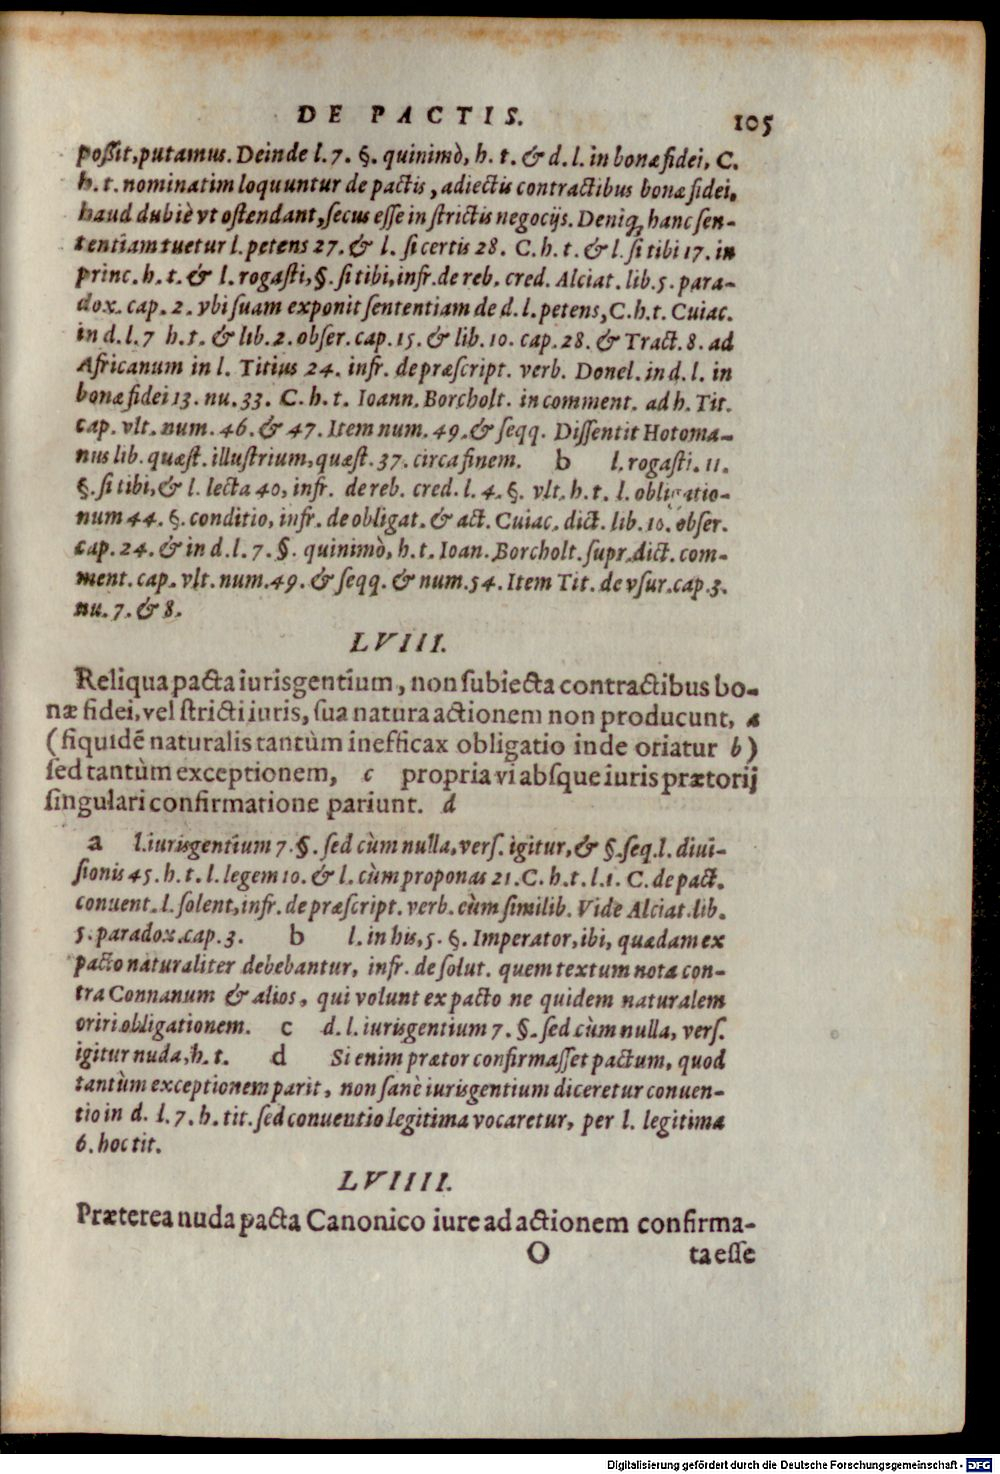 DE PACTIS. 105
poſſit, putamus. Deinde l. 7. §. quinimò, h. t. & d. l. in bonæ fidei, C.
h. t. nominatim loquuntur de pactis, adiectis contractibus bonæ fidei,
haud dubiè vt oſtendant, ſecus eſſe in ſtrictis negocijs. Deniq; hanc ſen-
tentiam tuetur l. petens 27. & l. ſi certis 28. C. h. t. & l. ſi tibi 17. in
princ. h. t. & l. rogaſti, §. ſi tibi, infr. de reb. cred. Alciat. lib. 5. para-
dox. cap. 2. vbi ſuam exponit ſententiam de d. l. petens, C. h. t. Cuiac.
in d. l. 7 h. t. & lib. 2. obſer. cap. 15. & lib. 10. cap. 28. & Tract. 8. ad
Africanum in l. Titius 24. infr. de præſcript. verb. Donel. in d. l. in
bonæ fidei 13. nu. 33. C. h. t. Ioann. Borcholt. in comment. ad h. Tit.
cap. vlt. num. 46. & 47. Item num. 49. & ſeqq. Diſſentit Hotoma-
nus lib. quæſt. illuſtrium, quæſt. 37. circa finem. b l. rogaſti. 11.
§. ſi tibi, & l. lecta 40, infr. de reb. cred. l. 4. §. vlt. h. t. l. obligatio-
num 44. §. conditio, infr. de obligat. & act. Cuiac. dict. lib. 10. obſer.
cap. 24. & in d. l. 7. §. quinimò, h. t. Ioan. Borcholt. ſupr. dict. com-
ment. cap. vlt. num. 49. & ſeqq. & num. 54. Item Tit. de vſur. cap. 3.
nu. 7. & 8.
LVIII.
Reliqua pacta iurisgentium, non ſubiecta contractibus bo-
næ fidei, vel ſtricti iuris, ſua natura actionem non producunt, a
(ſiquidē naturalis tantùm inefficax obligatio inde oriatur b)
ſed tantùm exceptionem, c propria vi absque iuris prætorij
ſingulari confirmatione pariunt. d
a l. iurisgentium 7. §. ſed cùm nulla, verſ. igitur, & §. ſeq. l. diui-
ſionis 45. h. t. l. legem 10. & l. cùm proponas 21. C. h. t. l. 1. C. de pact.
conuent. l. ſolent, infr. de præſcript. verb. cùm ſimilib. Vide Alciat. lib.
5. paradox. cap. 3. b l. in his, 5. §. Imperator, ibi, quædam ex
pacto naturaliter debebantur, infr. de ſolut. quem textum nota con-
tra Connanum & alios, qui volunt ex pacto ne quidem naturalem
oriri obligationem. c d. l. iurisgentium 7. §. ſed cùm nulla, verſ.
igitur nuda, h. t. d Si enim prætor confirmaſſet pactum, quod
tantùm exceptionem parit, non ſanè iurisgentium diceretur conuen-
tio in d. l. 7. h. tit. ſed conuentio legitima vocaretur, per l. legitima
6. hoc tit.
LVIIII.
Præterea nuda pacta Canonico iure ad actionem confirma-
O ta eſſe
Digitalisierung gefördert durch die Deutsche Forschungsgemeinschaft - DFG